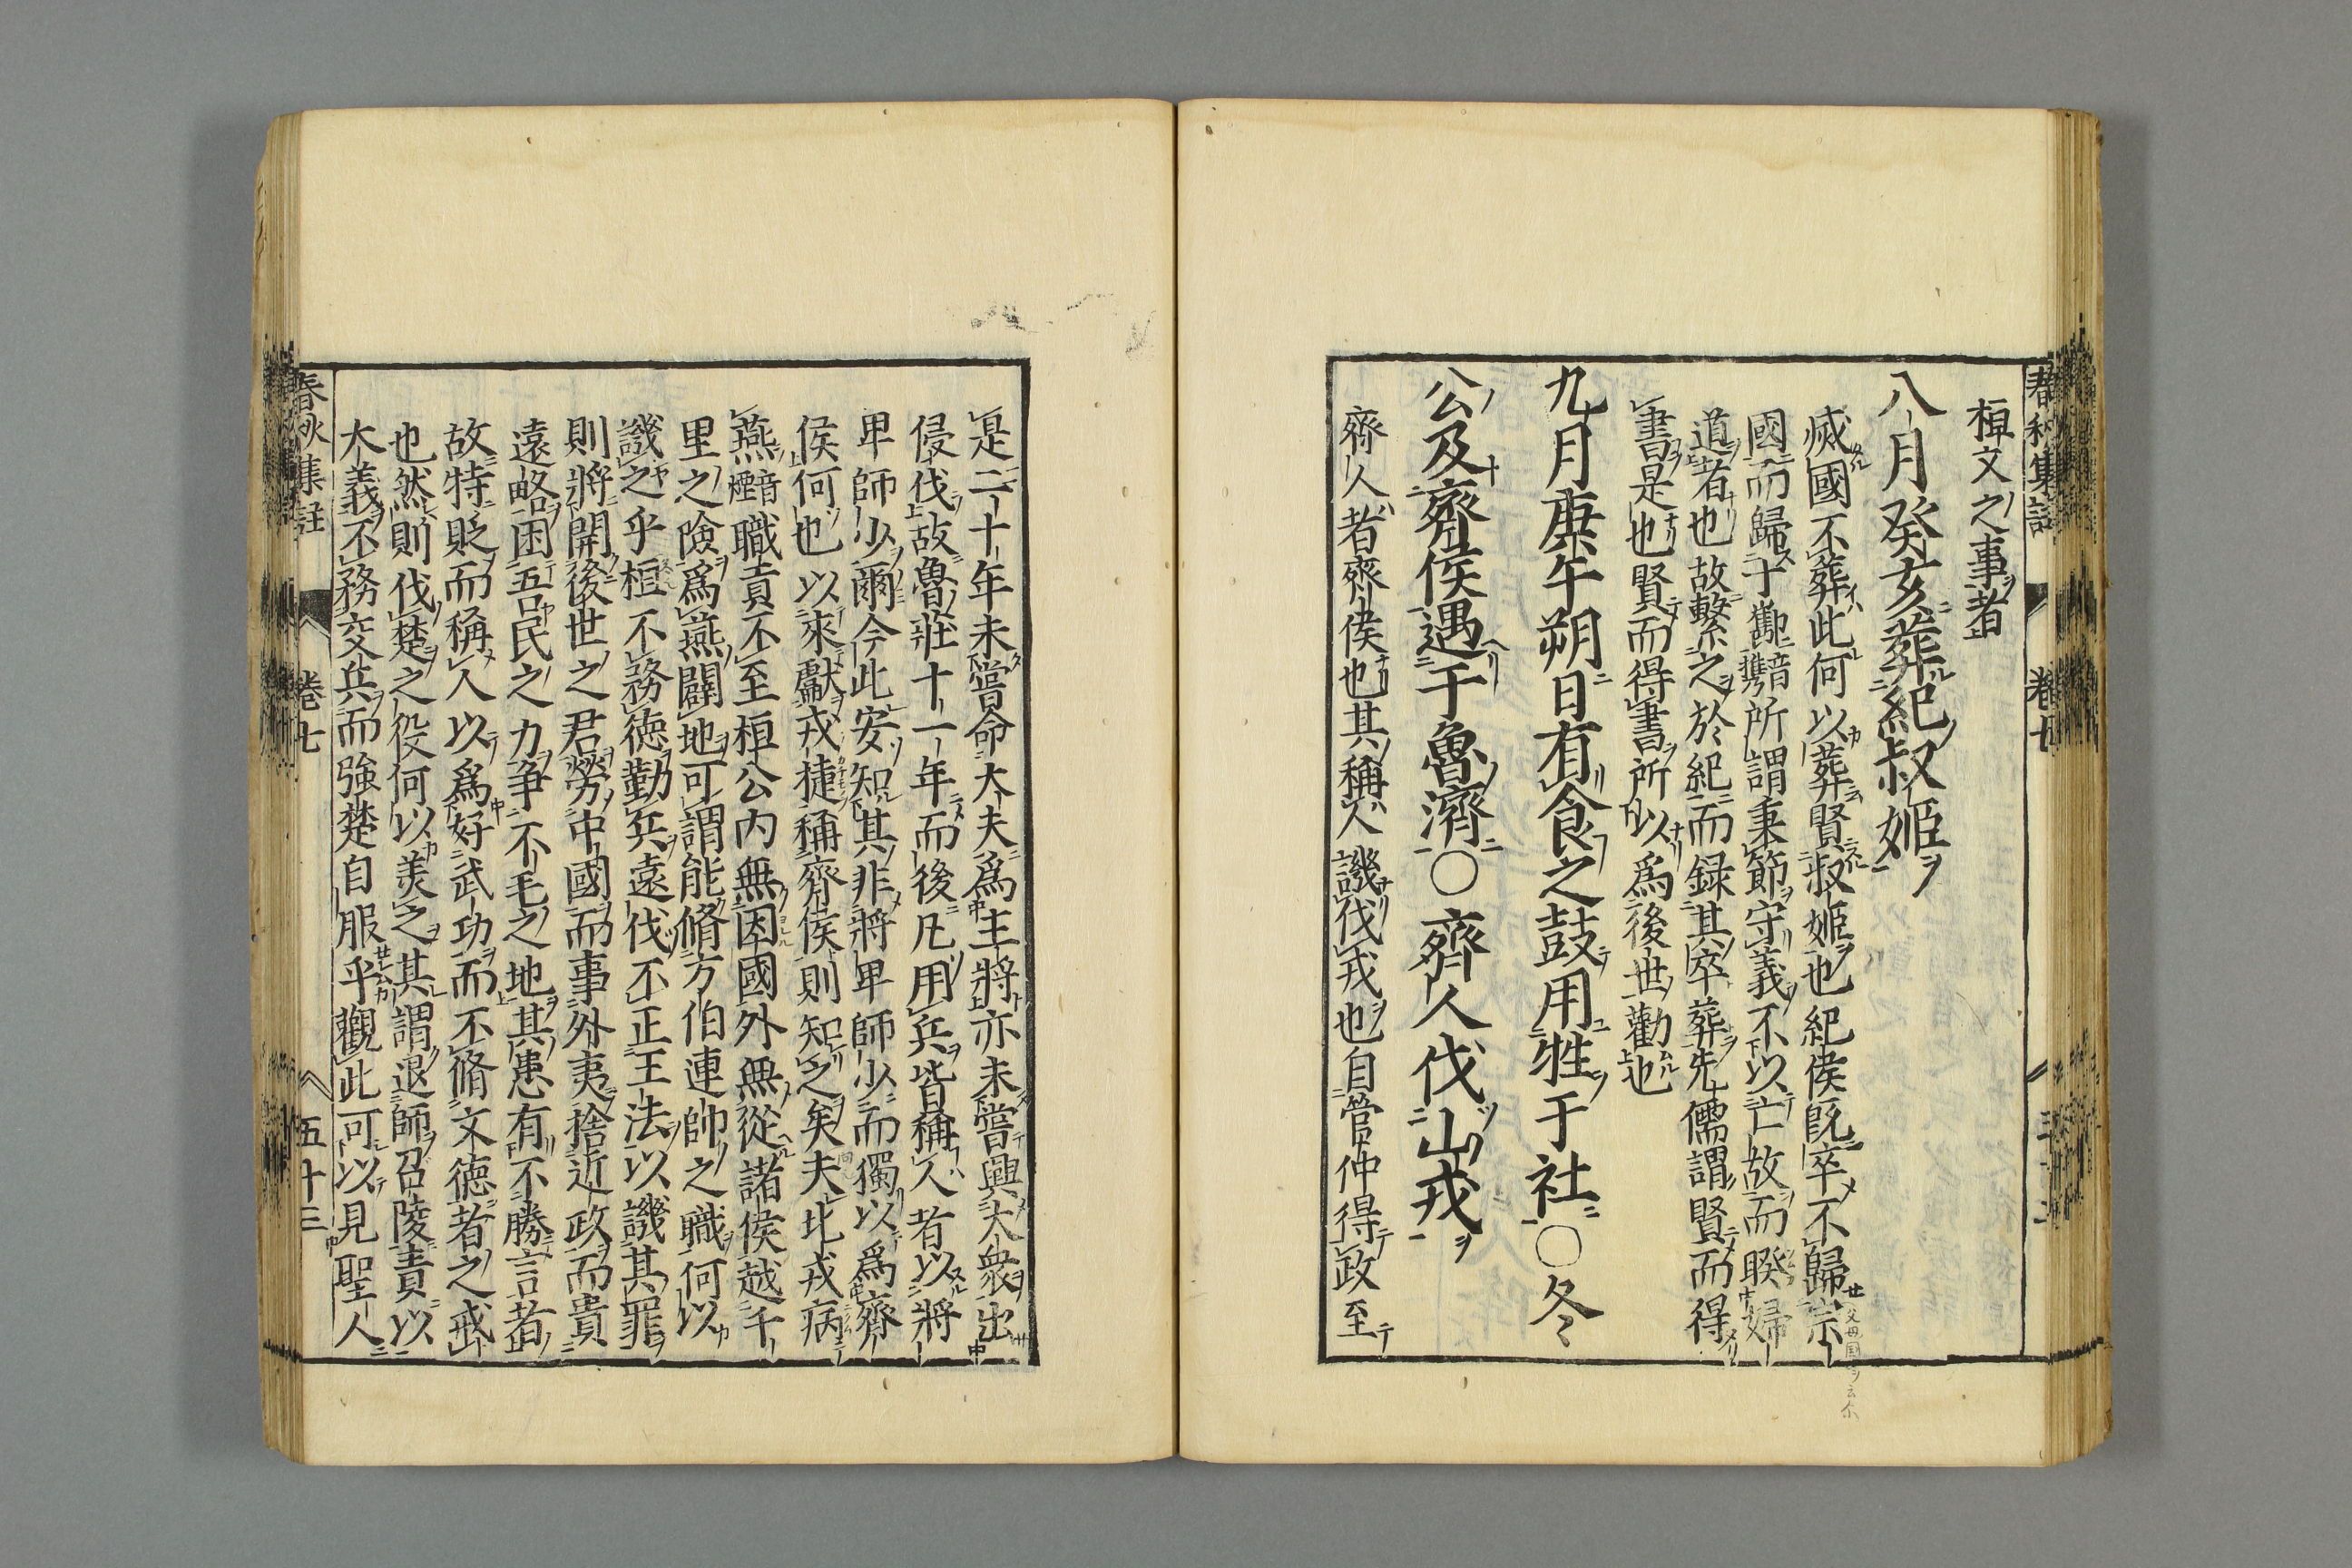 春秋集註 卷七
桓文之事者
八月癸亥葬紀叔姬
滅國不葬此何以葬賢叔姬也紀侯既卒不歸宗
國而歸于酅音攜所謂秉節守義不以亡故而睽婦
道者也故繫之於紀而録其卒葬先儒謂賢而得
書是也賢而得書所以爲後世勸也
九月庚午朔日有食之鼓用牲于社○冬
公及齊侯遇于魯濟○齊人伐山戎
齊人者齊侯也其稱人譏伐戎也自管仲得政至
是二十年未嘗命大夫爲主將亦未嘗興大衆出
侵伐故魯莊十一年而後凡用兵皆稱人者以將
卑師少爾今此安知其非將卑師少而獨以爲齊
侯何也以來獻戎捷稱齊侯則知之矣夫北戎病
燕音煙職貢不至桓公内無因國外無從諸侯越千
里之險爲燕闢地可謂能脩方伯連帥之職何以
譏之乎桓不務德勤兵遠伐不正王法以譏其罪
則將開後世之君勞中國而事外夷捨近政而貴
遠略困吾民之力争不毛之地其患有不勝言者
故特貶而稱人以爲好武功而不脩文德者之戒
也然則伐楚之役何以美之其謂退師召陵責以
大義不務交兵而強楚自服乎觀此可以見聖人
春秋集註 卷七 五十三